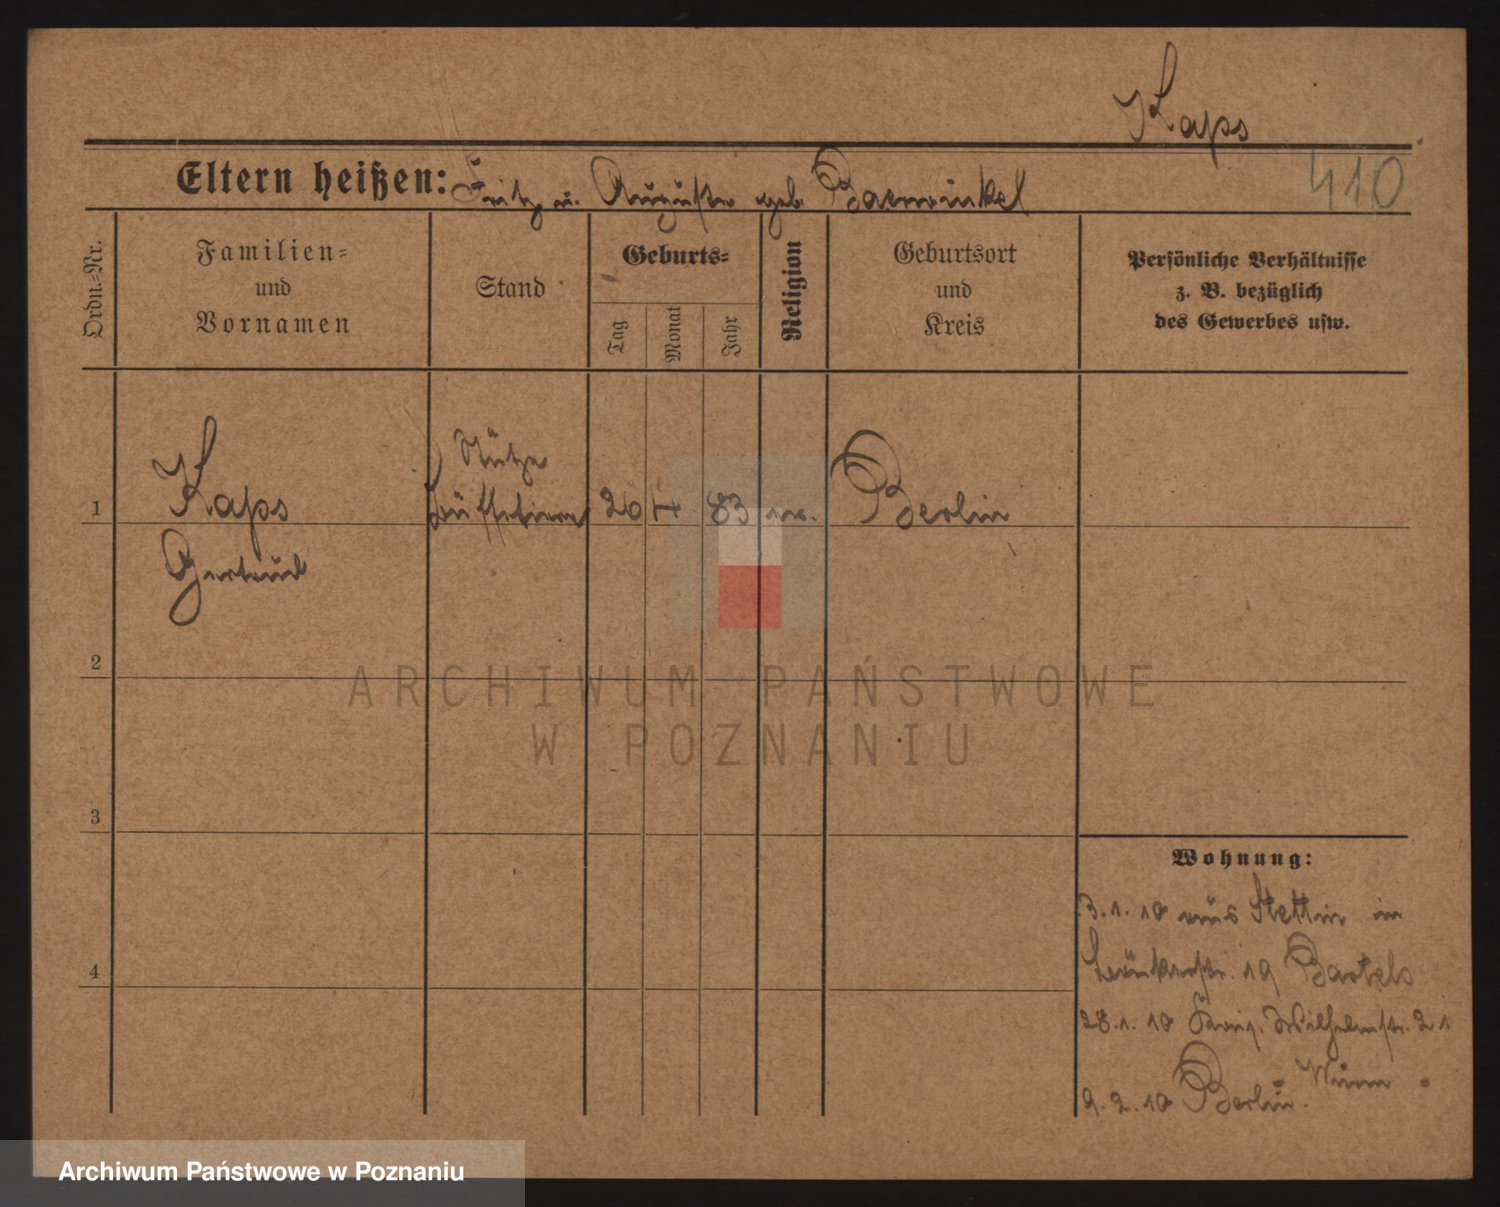 Kaps
410
Eltern heißen: Fritz u. Auguste geb. Baerwinkel
Ordn.-Nr.
Familien-
und
Vornamen
Stand
Geburts-
Tag
Monat
Jahr
Religion
Geburtsort
und
Kreis
Persönliche Verhältnisse
z. B. bezüglich
des Gewerbes usw.
1
Kaps
Stütze
Büffetiere
26 4 83 ev.
Berlin
Gertrud
2
3
4
ARCHIWUM PAŃSTWOWE
W POZNANIU
Wohnung:
3.1.10 aus Stettin in
19 Bartels
28.1.10 Wilhelmstr. 21
9.2.10 Berlin.
Archiwum Państwowe w Poznaniu